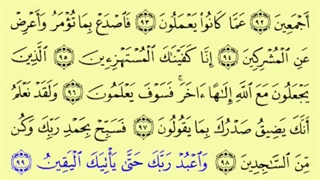 أَجۡمَعِينَ ٩٢ عَمَّا كَانُواْ يَعۡمَلُونَ ٩٣ فَٱصۡدَعۡ بِمَا تُؤۡمَرُ وَأَعۡرِضۡ
عَنِ ٱلۡمُشۡرِكِينَ ٩٤ إِنَّا كَفَيۡنَٰكَ ٱلۡمُسۡتَهۡزِءِينَ ٩٥ ٱلَّذِينَ
يَجۡعَلُونَ مَعَ ٱللَّهِ إِلَٰهًا ءَاخَرَۚ فَسَوۡفَ يَعۡلَمُونَ ٩٦ وَلَقَدۡ نَعۡلَمُ
أَنَّكَ يَضِيقُ صَدۡرُكَ بِمَا يَقُولُونَ ٩٧ فَسَبِّحۡ بِحَمۡدِ رَبِّكَ وَكُن
مِّنَ ٱلسَّٰجِدِينَ ٩٨ وَٱعۡبُدۡ رَبَّكَ حَتَّىٰ يَأۡتِيَكَ ٱلۡيَقِينُ ٩٩